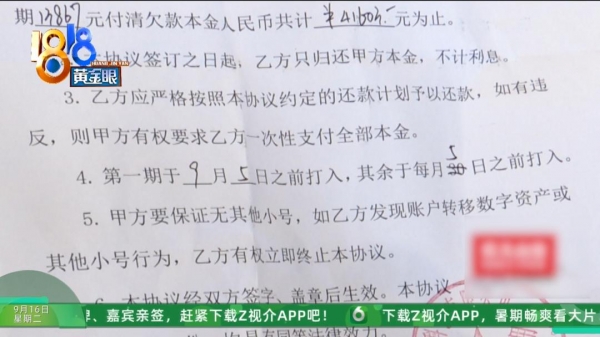 期13867元付清欠款本金人民币共计¥41603.元为止。
1818
黄金眼
本协议签订之日起，乙方只归还甲方本金，不计利息。
3. 乙方应严格按照本协议约定的还款计划予以还款，如有违
反，则甲方有权要求乙方一次性支付全部本金。
4. 第一期于9月5日之前打入，其余于每月5日之前打入。
5. 甲方要保证无其他小号，如乙方发现账户转移数字资产或
其他小号行为，乙方有权立即终止本协议。
6. 本协议经双方签字、盖章后生效。本协议
9月16日
星期二
、嘉宾亲签，赶紧下载Z视介APP吧！
下载Z视介APP，暑期畅爽看大片
具有同等法律效力。